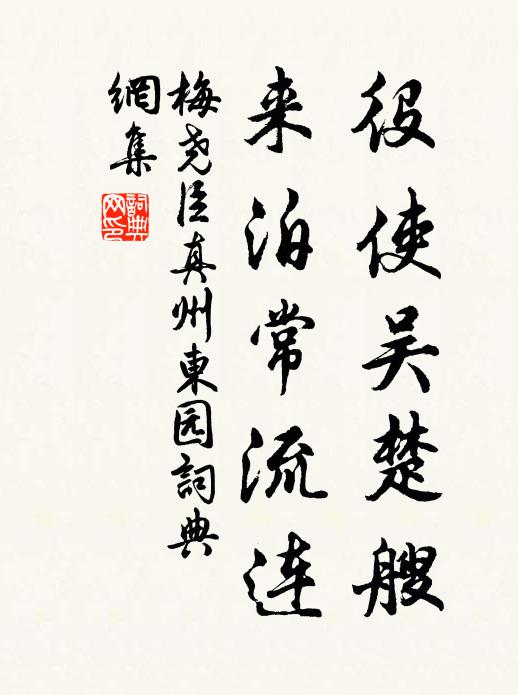 役使吴楚艘
来泊常流连
梅尧臣真州東园詞典
網集
詞典
网印